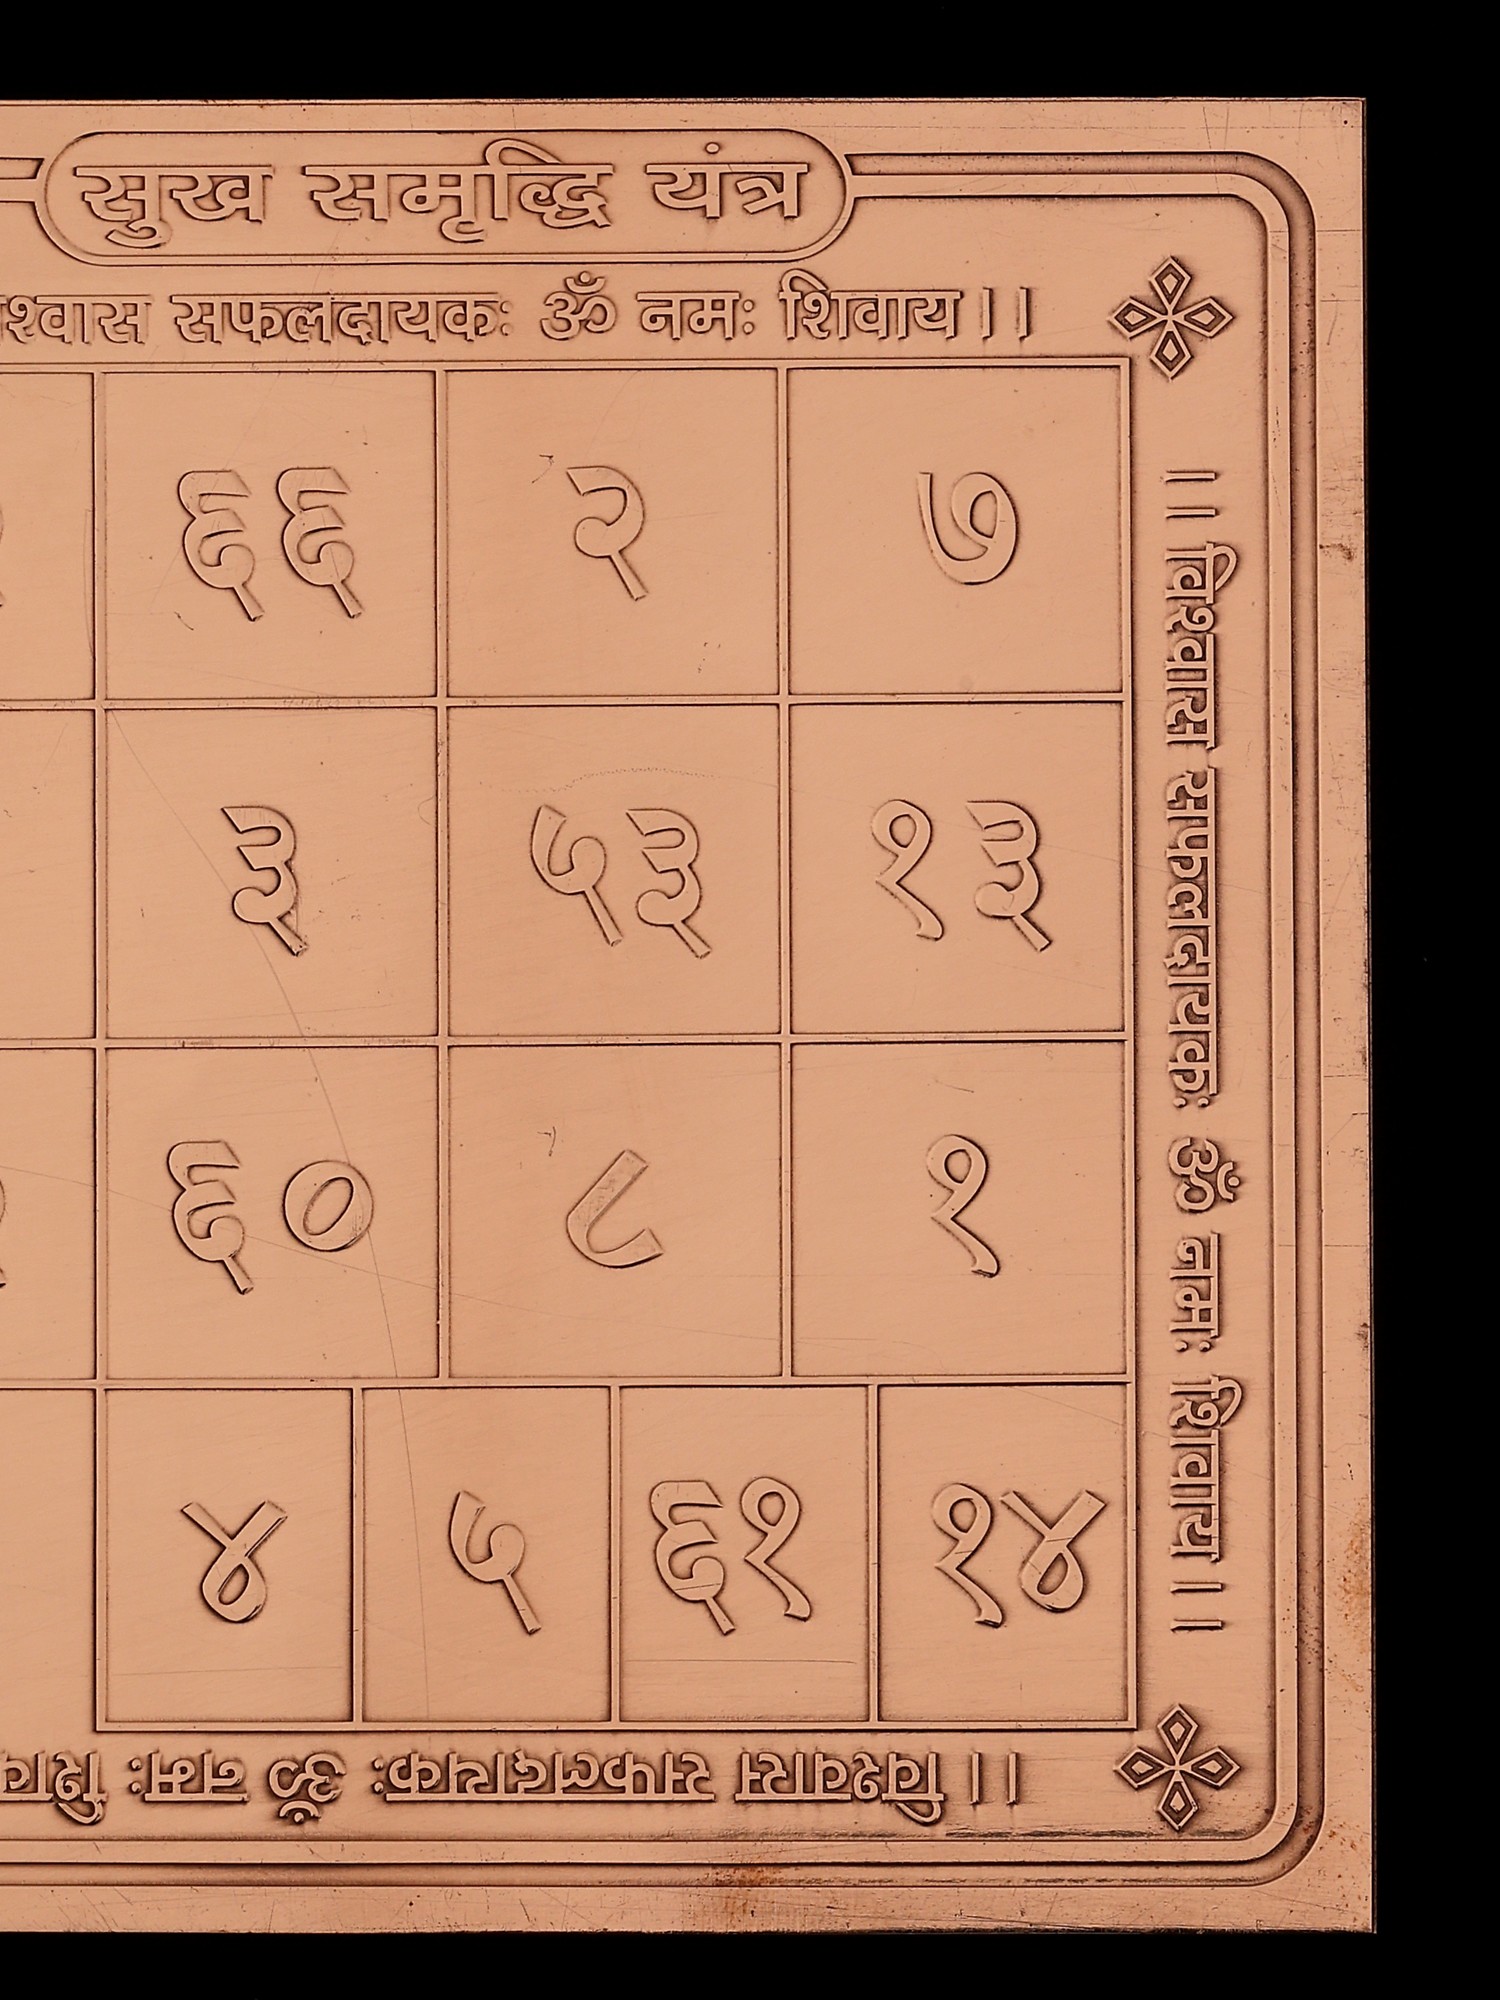 सुख समृद्धि यंत्र
सफलदायकः ॐ नमः शिवाय ।।
६६ २ ७
३ ५३ १३
६० ८ १
४ ५ ६१ १४
।। विश्वास सफलदायकः ॐ नमः शिवाय ।।
।। विश्वास सफलदायकः ॐ नमः